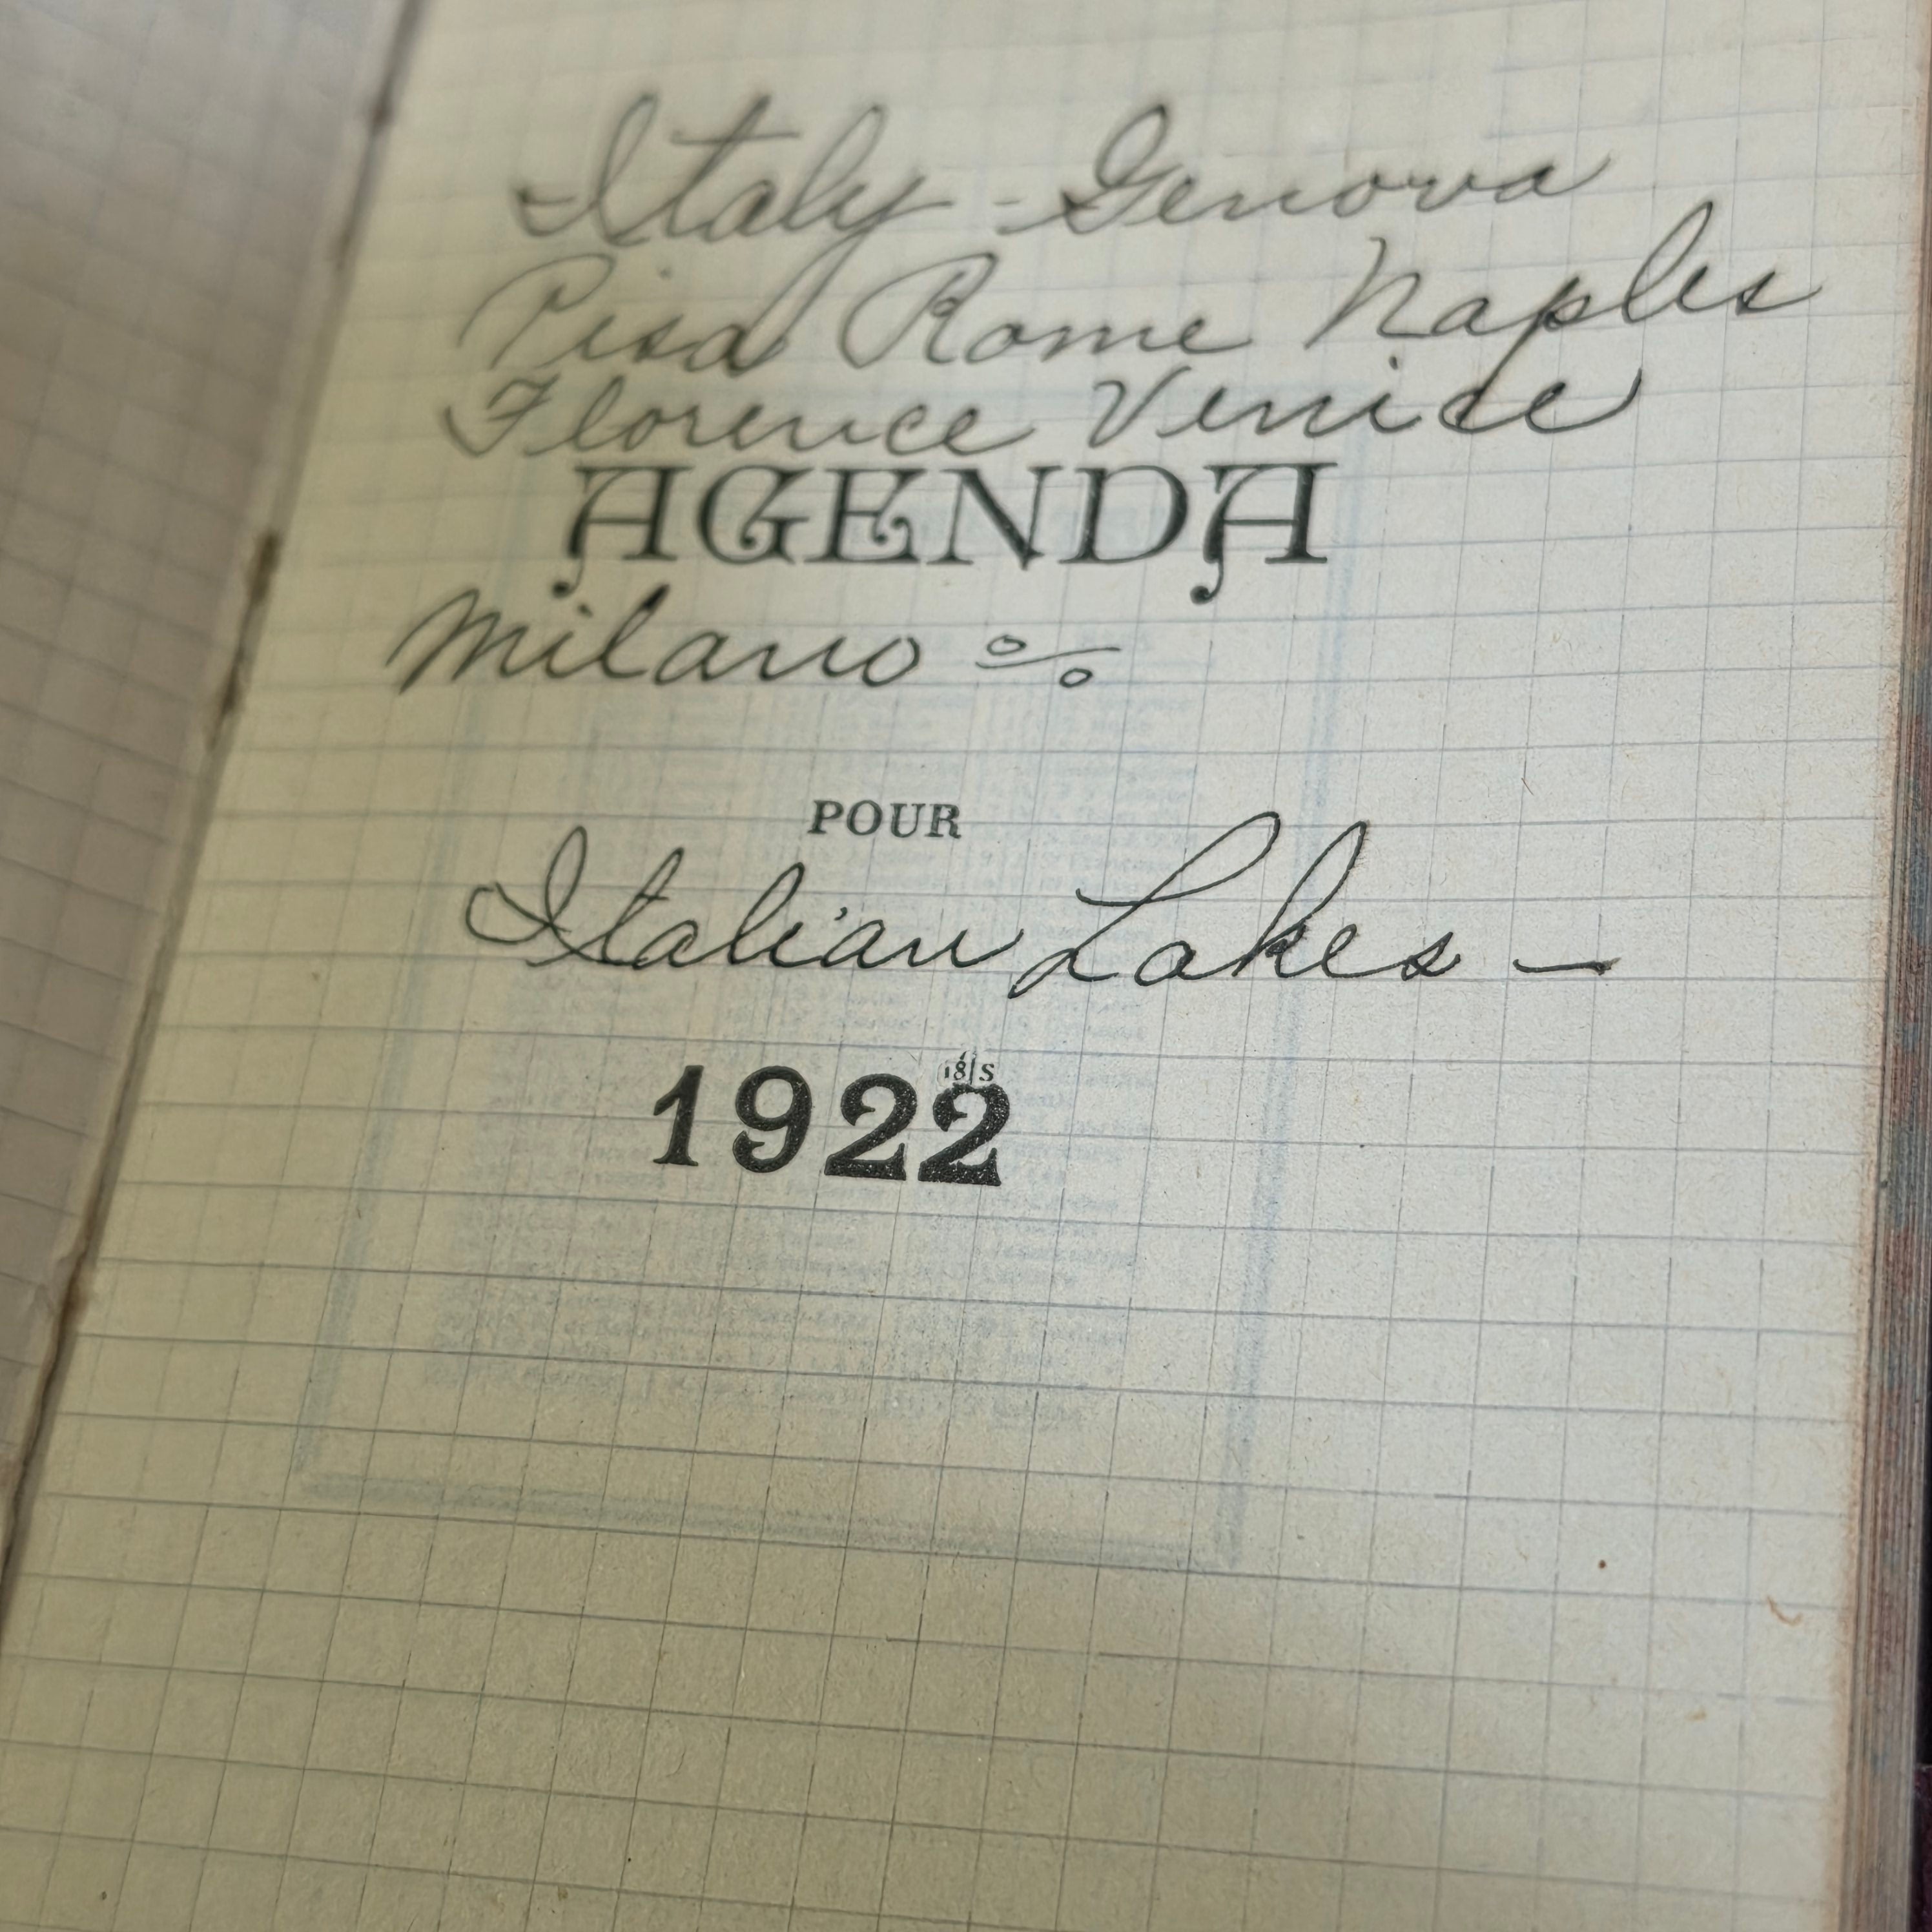 Italy - Genova
Pisa Rome Naples
Florence Venice
AGENDA
Milano
POUR
Italian Lakes —
18 S
1922